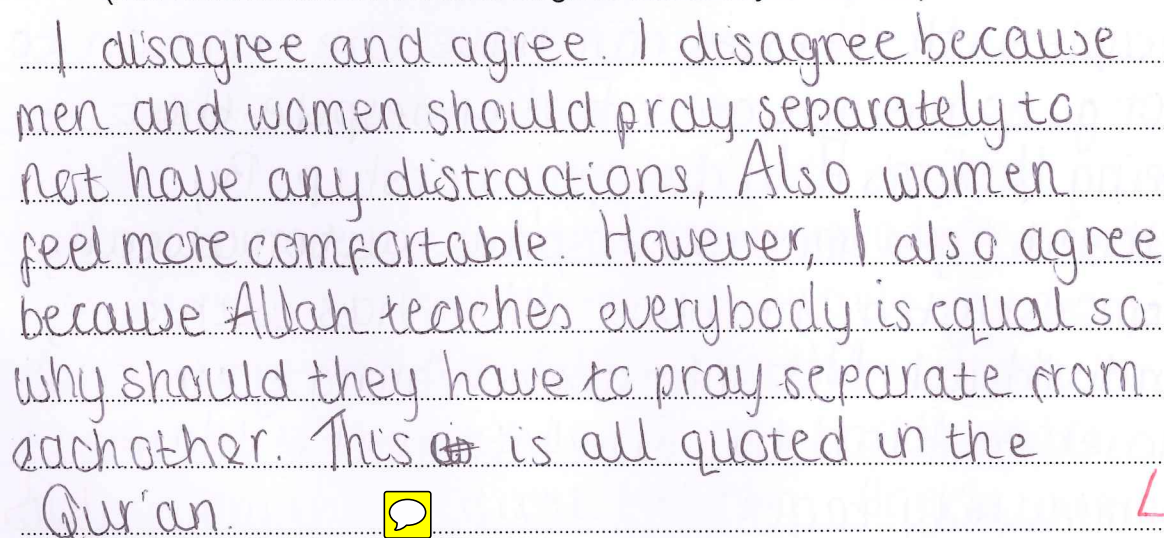 I disagree and agree. I disagree because
men and women should pray separately to
not have any distractions, Also women
feel more comfortable. However, I also agree
because Allah teaches everybody is equal so
why should they have to pray separate from
eachother. This is all quoted in the
Qur'an.